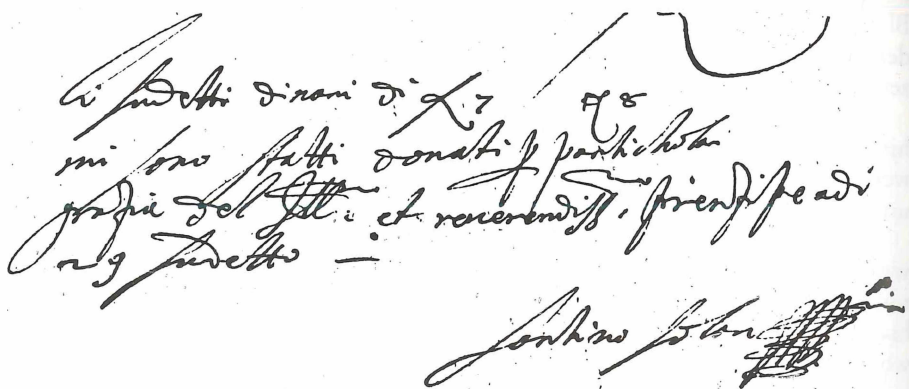 li sudetti dinari di L 7 ß 8
mi sono statti donati p particholar
grazia del Ill.mo et reverendiss.o prenzipe adi
29 sudetto —
Santino Solari